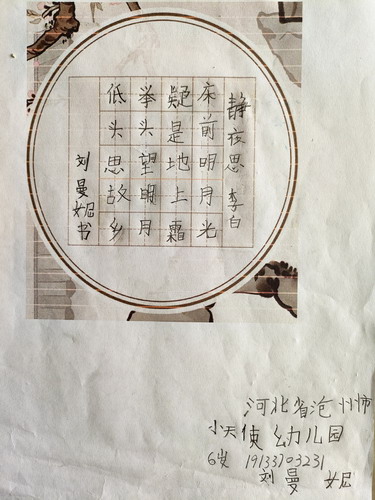 静夜思 李白
床前明月光
疑是地上霜
举头望明月
低头思故乡
刘曼妮书
河北省沧州市
小天使幼儿园
6岁 19133703231
刘曼妮